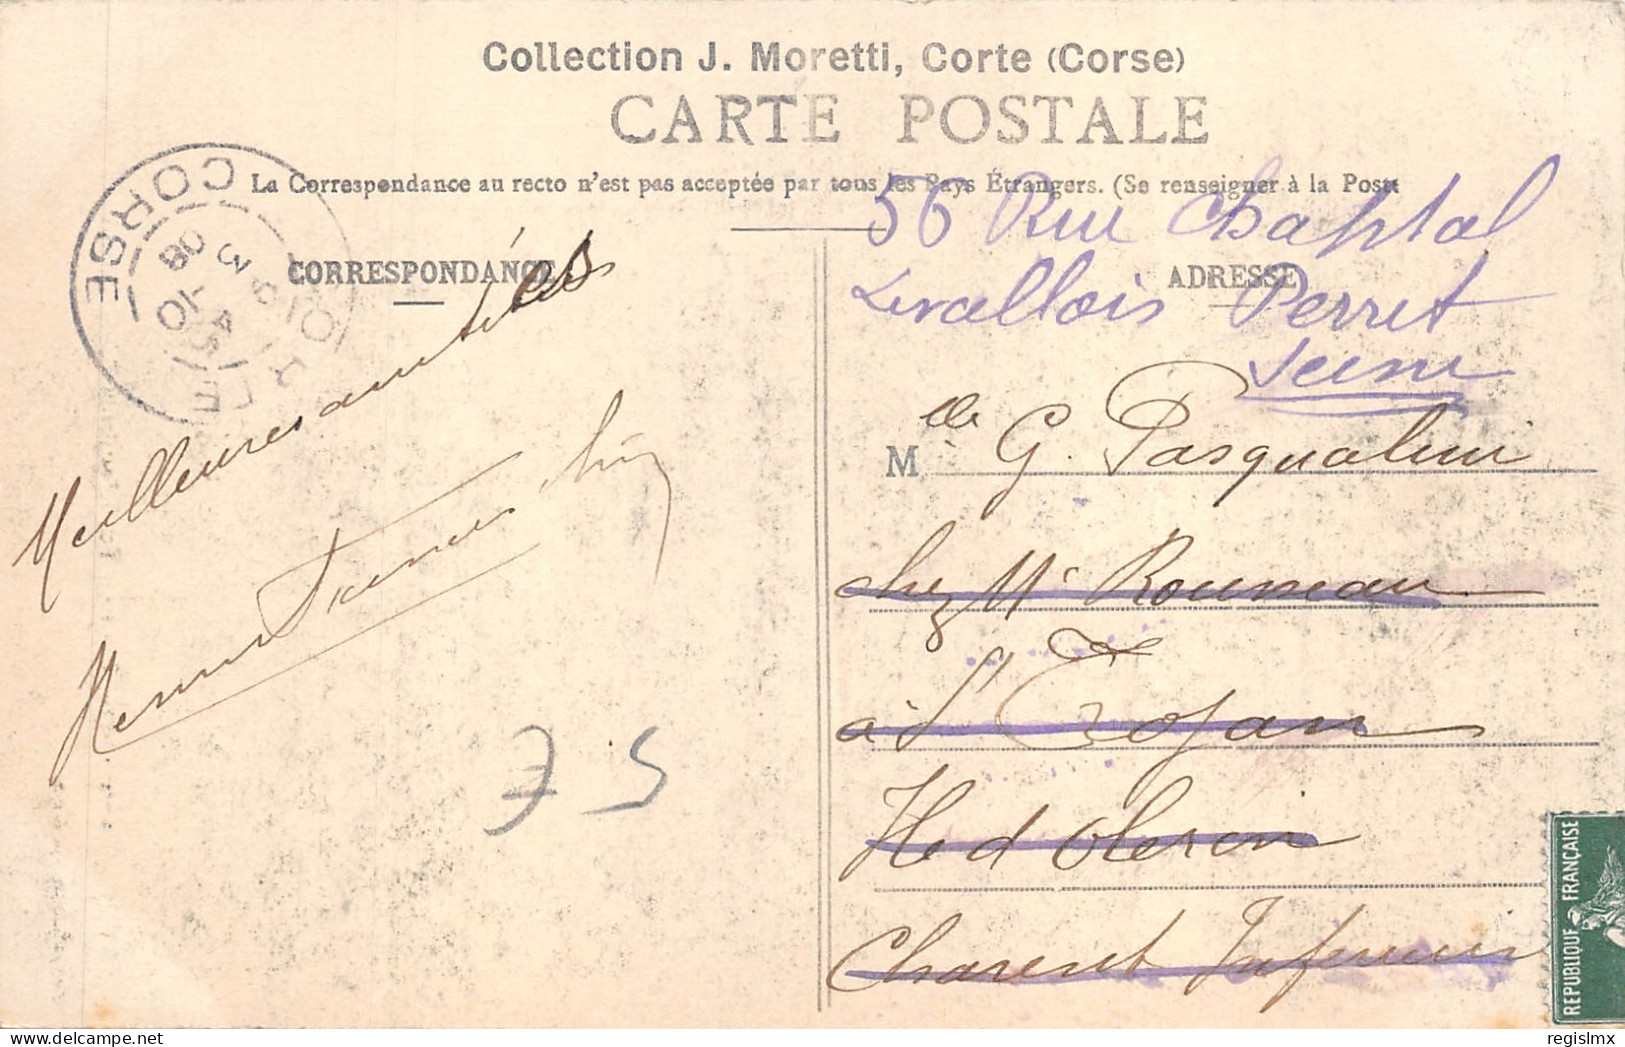 Collection J. Moretti, Corte (Corse)
CARTE POSTALE
La Correspondance au recto n'est pas acceptée par tous les Pays Étrangers. (Se renseigner à la Poste
CORRESPONDANCE
ADRESSE
56 Rue Chaptal
Levallois Perret
Seine
Meilleures amitiés
M lle G. Pasqualini
chez Mr Rousseau
à St Trojan
Ile d'Oleron
Charente Inférieure
CORSE
08
7 5
REPUBLIQUE FRANÇAISE
delcampe.net
regislmx